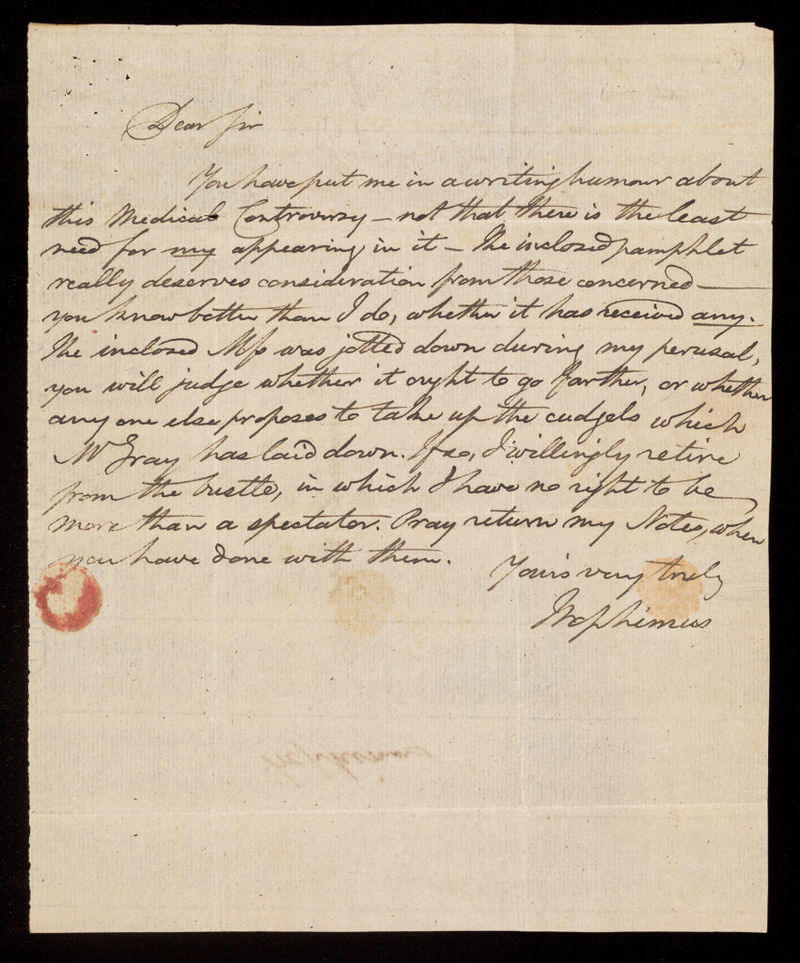 Dear Sir
You have put me in a writing humour about
this Medical Controversy – not that there is the least
need for my appearing in it – The inclosed pamphlet
really deserves consideration from those concerned —
you know better than I do, whether it has received any.
The inclosed Mss was jotted down during my perusal,
you will judge whether it ought to go farther, or whether
any one else proposes to take up the cudgels which
Mr Gray has laid down. If so, I willingly retire
from the bustle, in which I have no right to be
more than a spectator. Pray return my Notes, when
you have done with them.
Yours very truly